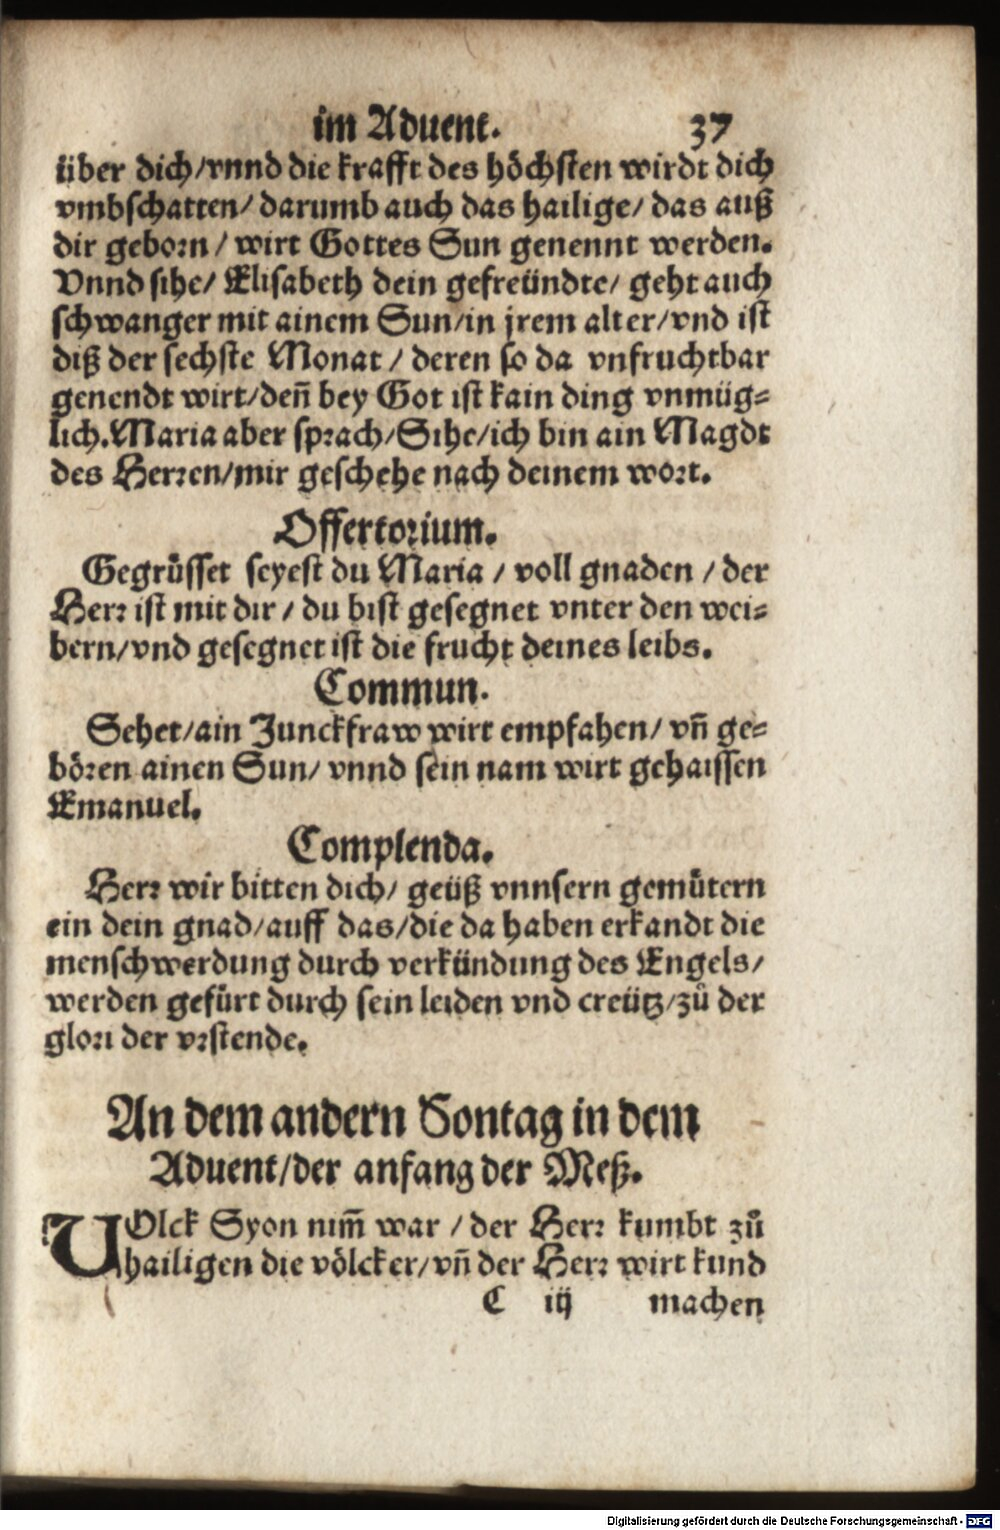 im Aduent. 37
über dich/vnnd die krafft des höchsten wirdt dich
vmbschatten/ darumb auch das hailige/ das auß
dir geborn/ wirt Gottes Sun genennt werden.
Vnnd sihe/ Elisabeth dein gefreündte/ geht auch
schwanger mit ainem Sun/in jrem alter/vnd ist
diß der sechste Monat/ deren so da vnfruchtbar
genendt wirt/deñ bey Got ist kain ding vnmüg-
lich. Maria aber sprach/Sihe/ich bin ain Magdt
des Herren/mir geschehe nach deinem wort.
Offertorium.
Gegrüsset seyest du Maria / voll gnaden / der
Herr ist mit dir / du bist gesegnet vnter den wei-
bern/vnd gesegnet ist die frucht deines leibs.
Commun.
Sehet/ain Junckfraw wirt empfahen/ vñ ge-
bören ainen Sun/ vnnd sein nam wirt gehaissen
Emanuel.
Complenda.
Herr wir bitten dich/ geüß vnnsern gemütern
ein dein gnad/auff das/die da haben erkandt die
menschwerdung durch verkündung des Engels/
werden gefürt durch sein leiden vnd creütz/zů der
glori der vrstende.
An dem andern Sontag in dem
Aduent/der anfang der Meß.
VOlck Syon nim̃ war / der Herr kumbt zů
hailigen die völcker/vñ der Herr wirt kund
C iij machen
Digitalisierung gefördert durch die Deutsche Forschungsgemeinschaft - DFG